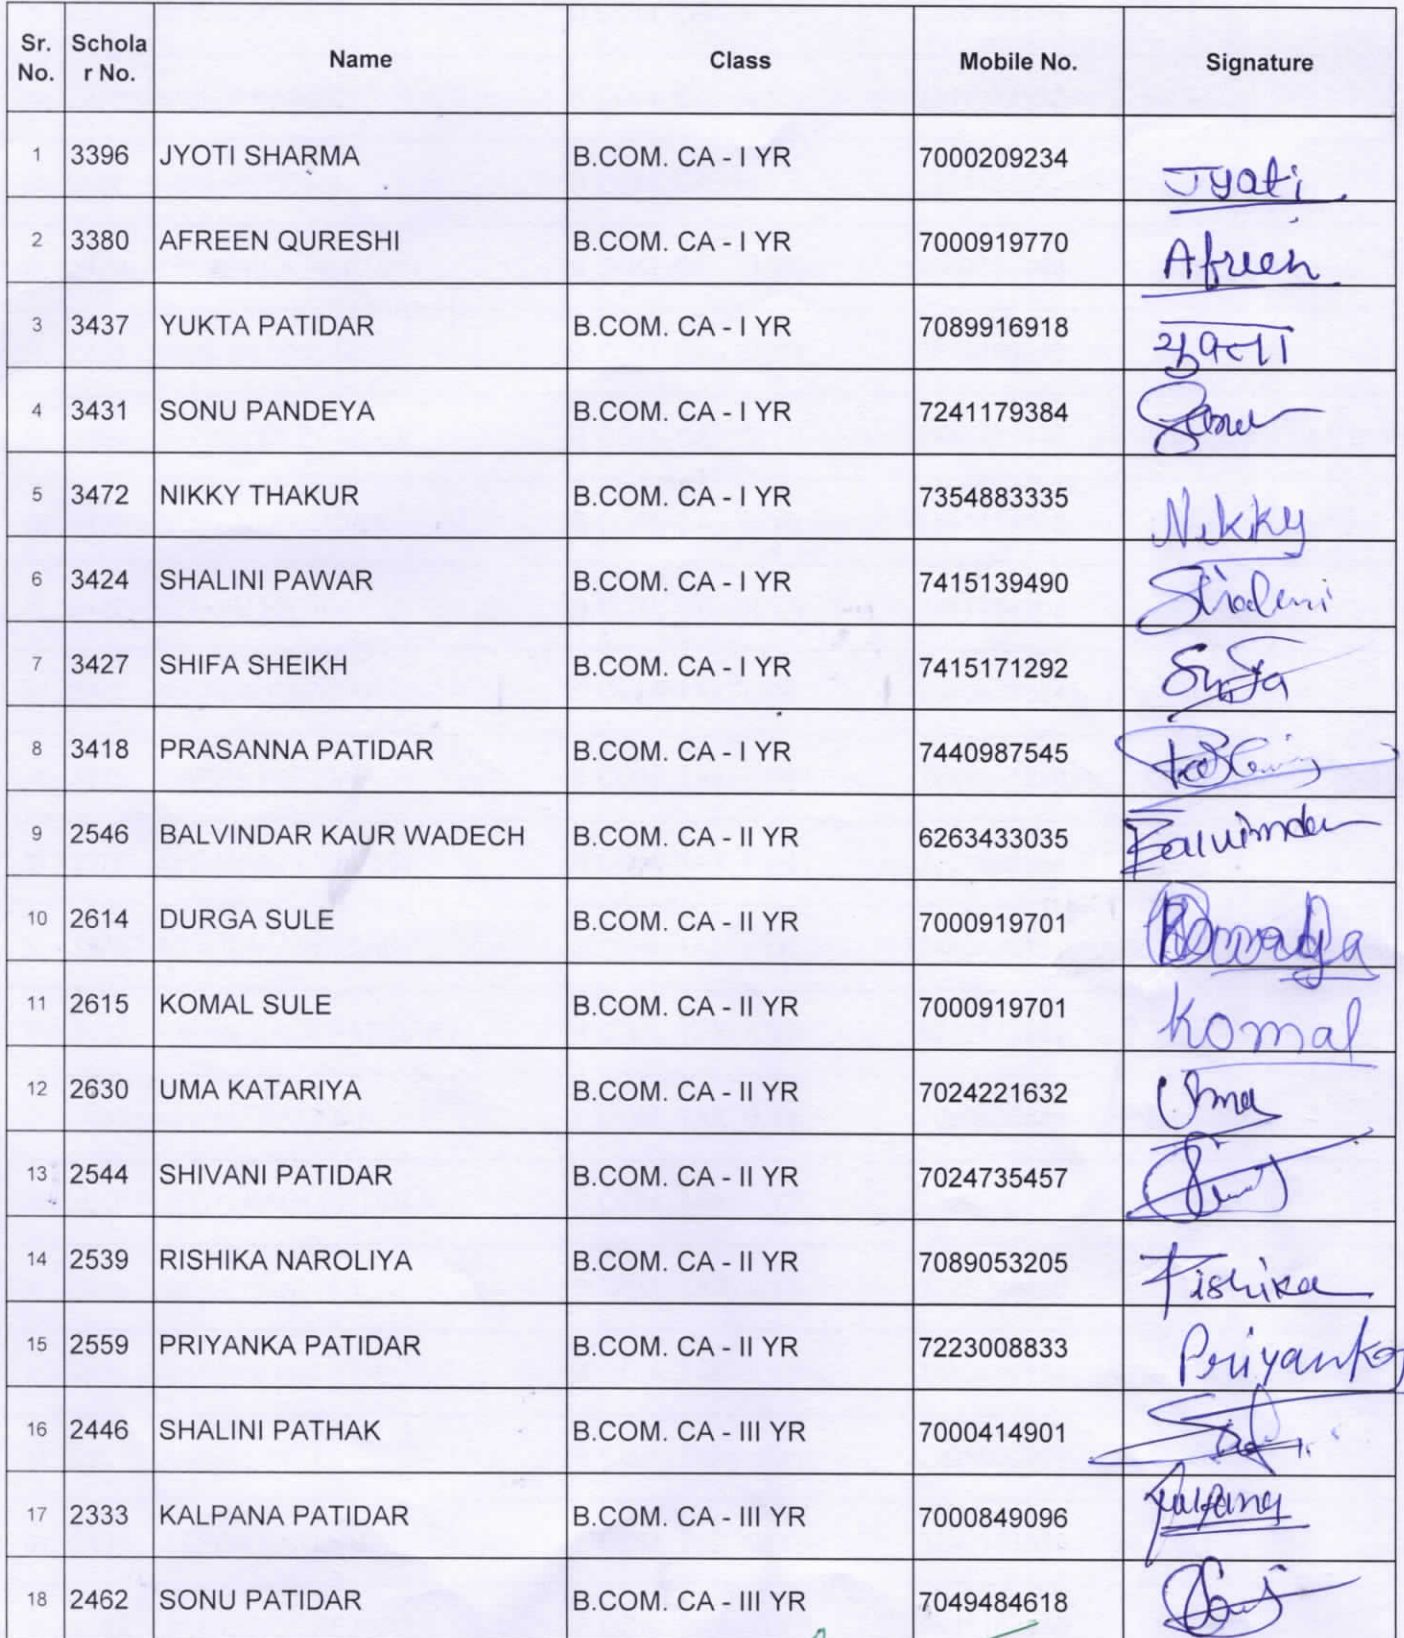 Sr. No. Schola r No. Name Class Mobile No. Signature
1 3396 JYOTI SHARMA B.COM. CA - I YR 7000209234 Jyoti
2 3380 AFREEN QURESHI B.COM. CA - I YR 7000919770 Afreen
3 3437 YUKTA PATIDAR B.COM. CA - I YR 7089916918 युक्ता
4 3431 SONU PANDEYA B.COM. CA - I YR 7241179384 Sonu
5 3472 NIKKY THAKUR B.COM. CA - I YR 7354883335 Nikky
6 3424 SHALINI PAWAR B.COM. CA - I YR 7415139490 Shalini
7 3427 SHIFA SHEIKH B.COM. CA - I YR 7415171292 Shifa
8 3418 PRASANNA PATIDAR B.COM. CA - I YR 7440987545
9 2546 BALVINDAR KAUR WADECH B.COM. CA - II YR 6263433035 Balvinder
10 2614 DURGA SULE B.COM. CA - II YR 7000919701
11 2615 KOMAL SULE B.COM. CA - II YR 7000919701 Komal
12 2630 UMA KATARIYA B.COM. CA - II YR 7024221632 Uma
13 2544 SHIVANI PATIDAR B.COM. CA - II YR 7024735457
14 2539 RISHIKA NAROLIYA B.COM. CA - II YR 7089053205 Rishika
15 2559 PRIYANKA PATIDAR B.COM. CA - II YR 7223008833 Priyanka
16 2446 SHALINI PATHAK B.COM. CA - III YR 7000414901
17 2333 KALPANA PATIDAR B.COM. CA - III YR 7000849096 Kalpana
18 2462 SONU PATIDAR B.COM. CA - III YR 7049484618